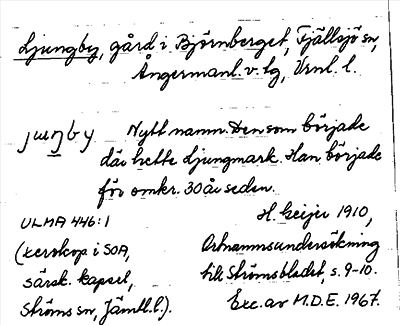 Ljungby, gård i Björnberget, Fjällsjö sn,
Ångermanl. v. tg, Vrnl. l.
juŋby Nytt namn. Den som började
där hette Ljungmark. Han började
för omkr. 30 år seden.
ULMA 446:1
(xerokop i SOA,
särsk. kapsel,
Ströms sn, Jämtl. l.).
H. Geijer 1910,
Ortnamnsundersökning
till Strömsbladet, s. 9-10.
Exc. av M.D.E. 1967.